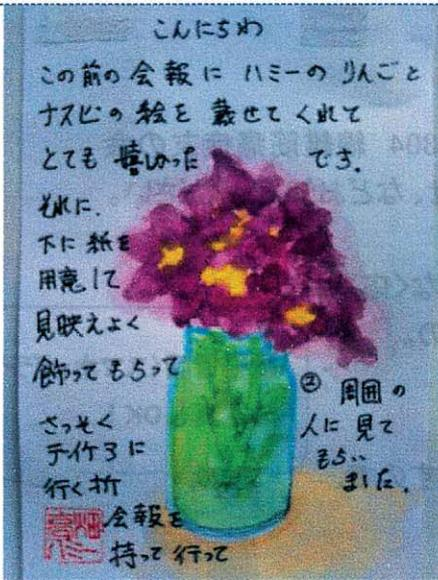 こんにちわ
この前の会報に ハミーの りんごと
ナスビの絵を 載せて くれて
とても 嬉しかった です。
それに、
下に紙を
用意して
見映えよく
飾ってもらって
さっそく
デイケアに
行く折
会報を
持って行って
② 周囲の
人に見て
もらい
ました。